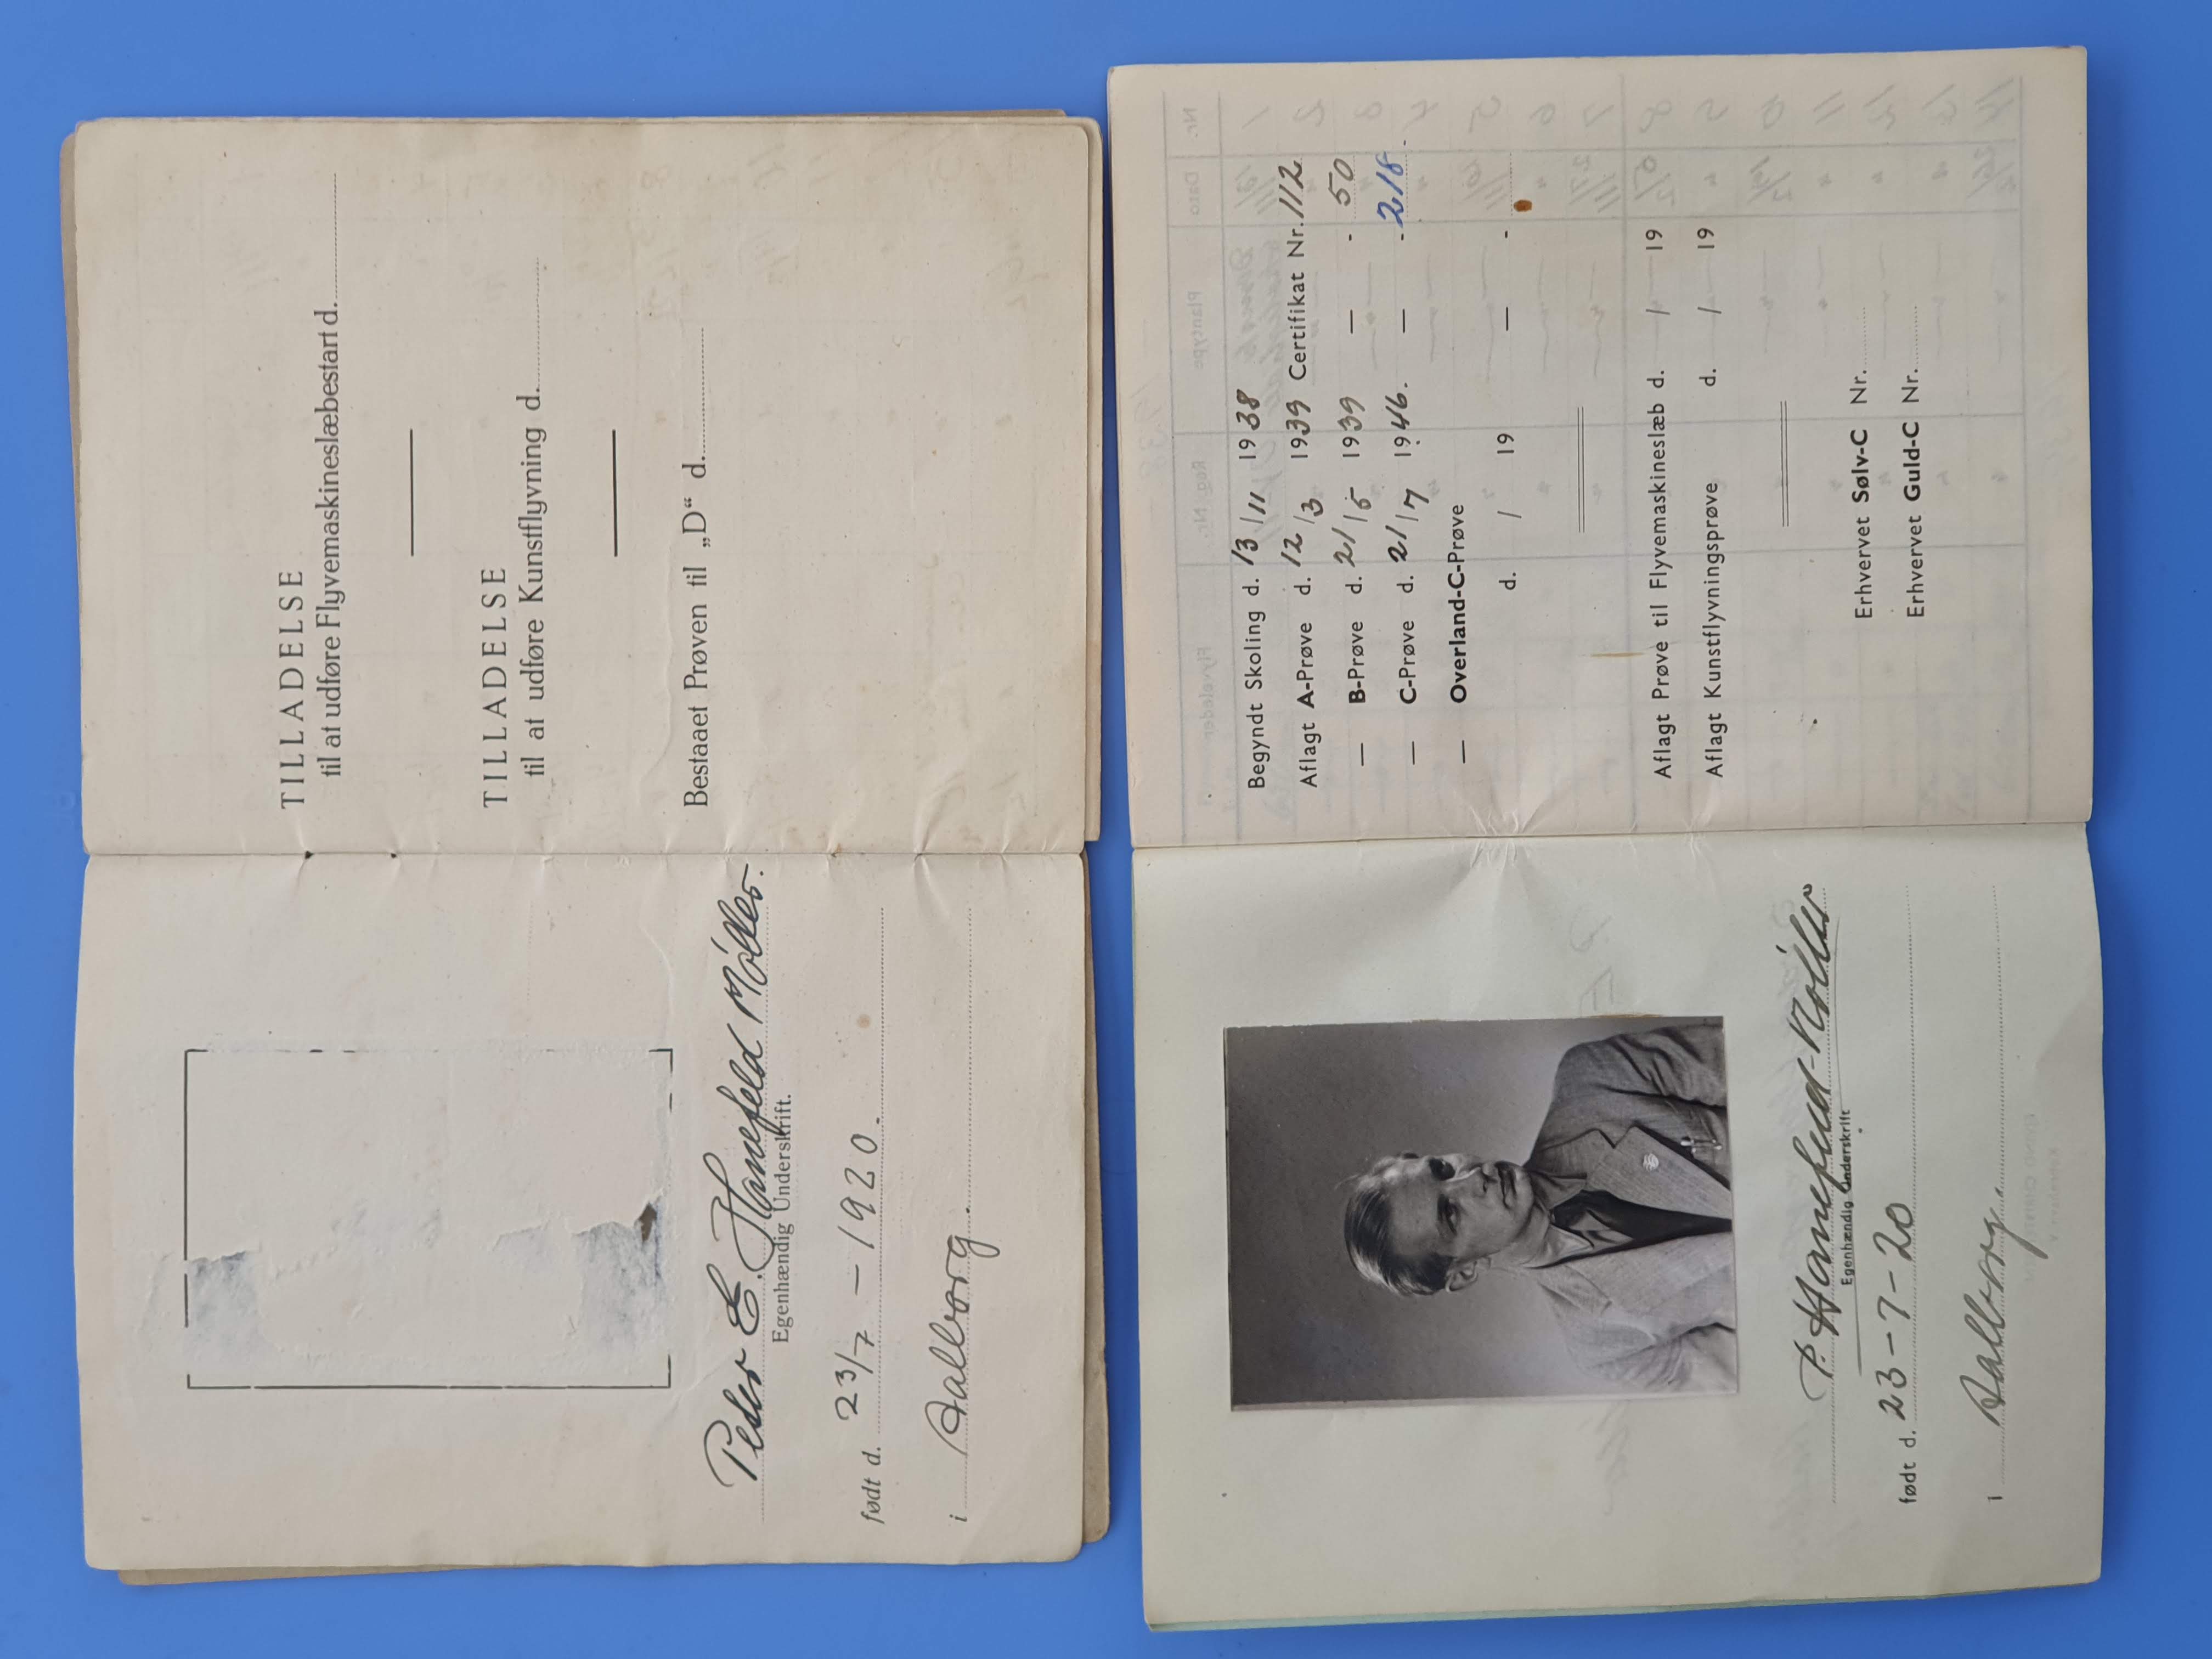 Peder E. Hanefeld Möller.
Egenhændig Underskrift.
født d. 23/7 – 1920.
i Aalborg.
TILLADELSE
til at udføre Flyvemaskineslæbestart d.
TILLADELSE
til at udføre Kunstflyvning d.
Bestaaet Prøven til „D“ d.
P. Hanefeld-Möller
Egenhændig Underskrift
født d. 23-7-20
i Aalborg.
Begyndt Skoling d. 13/11 1938
Aflagt A-Prøve d. 12/3 1939 Certifikat Nr. 112
— B-Prøve d. 21/5 1939 — - 50
— C-Prøve d. 21/7 1946. — - 218.
— Overland-C-Prøve
d. / 19 — -
Aflagt Prøve til Flyvemaskineslæb d. / 19
Aflagt Kunstflyvningsprøve d. / 19
Erhvervet Sølv-C Nr.
Erhvervet Guld-C Nr.